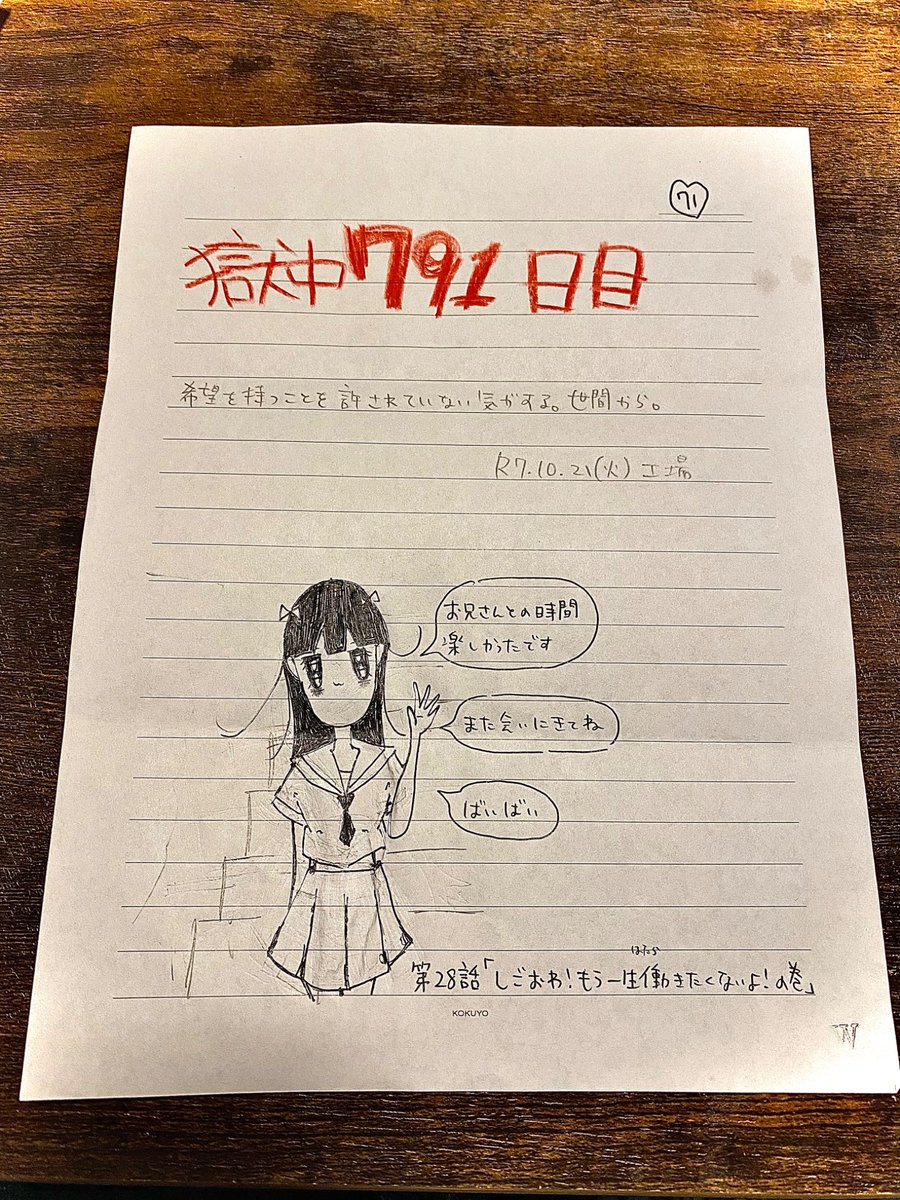 71
獄中791日目
希望を持つことを許されていない気がする。世間から。
R7.10.21(火)工場
お兄さんとの時間
楽しかったです
また会いにきてね
ばいばい
はたら
第28話「しごおわ!もう一生働きたくないよ!の巻」
KOKUYO